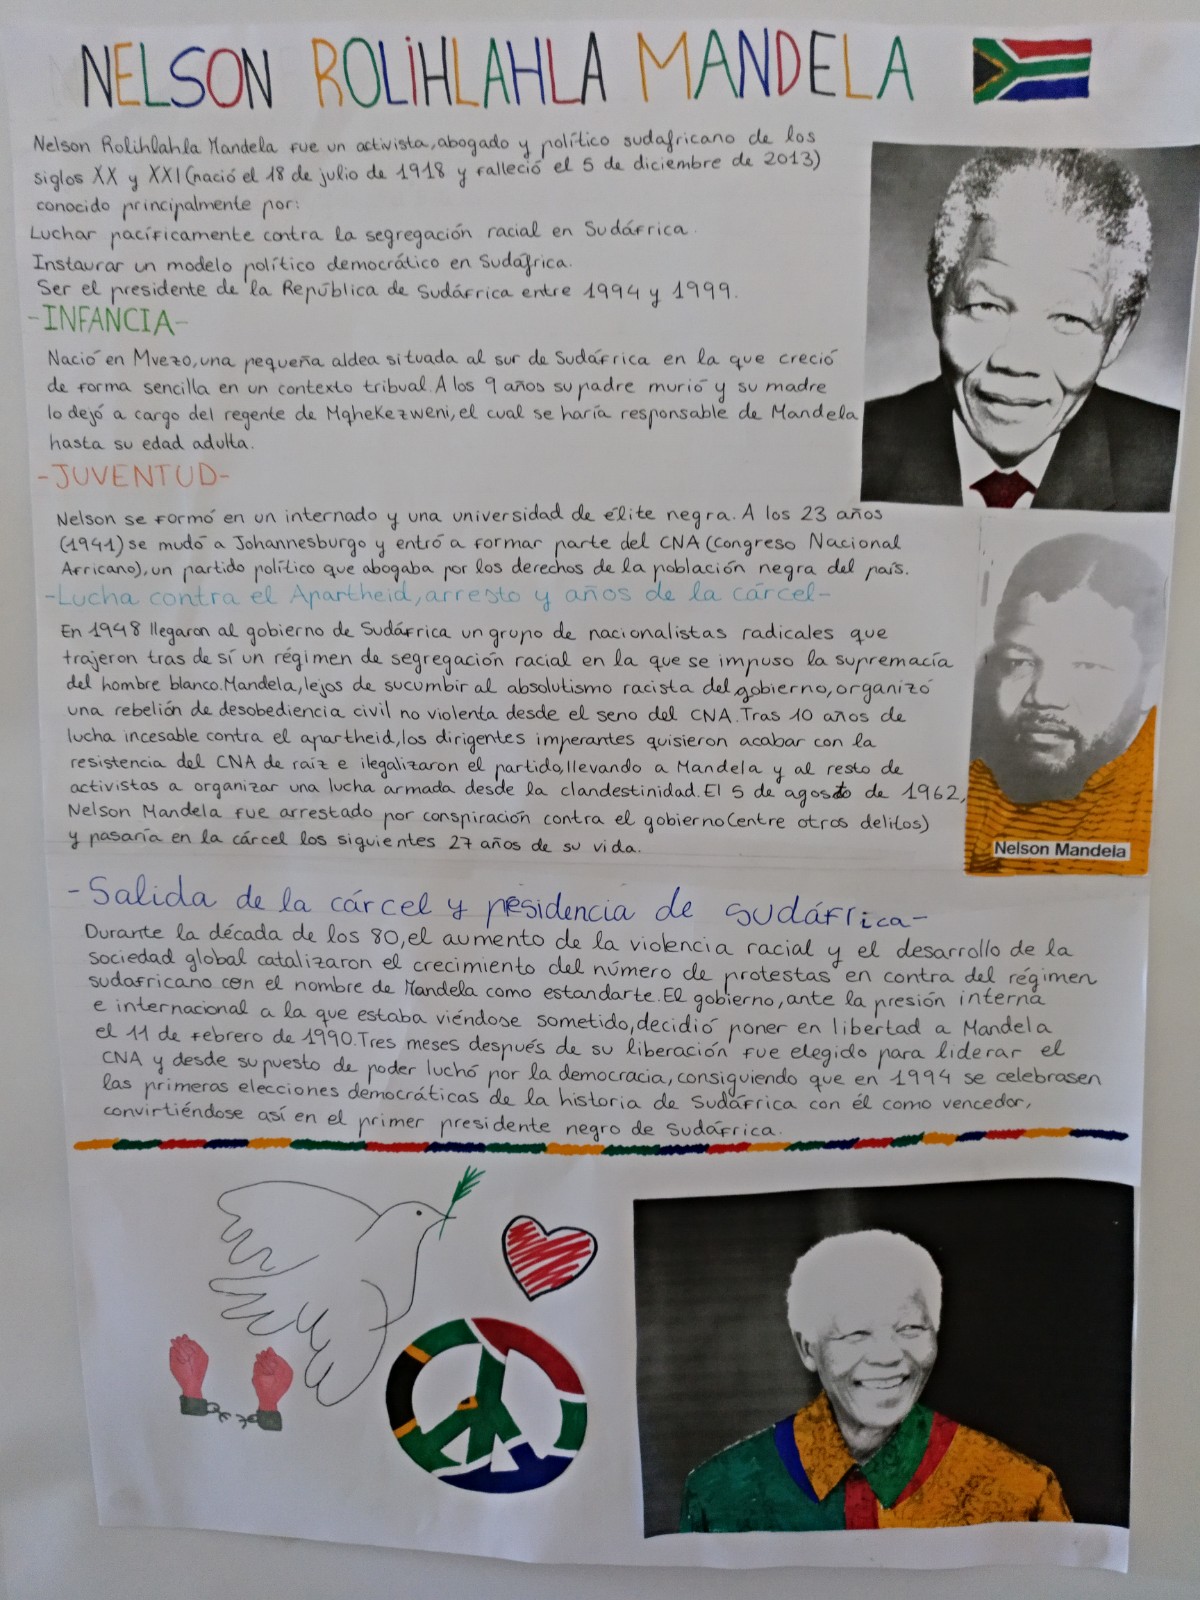 NELSON ROLIHLAHLA MANDELA
Nelson Rolihlahla Mandela fue un activista, abogado y político sudafricano de los
siglos XX y XXI (nació el 18 de julio de 1918 y falleció el 5 de diciembre de 2013)
conocido principalmente por:
Luchar pacíficamente contra la segregación racial en Sudáfrica.
Instaurar un modelo político democrático en Sudáfrica.
Ser el presidente de la República de Sudáfrica entre 1994 y 1999.
-INFANCIA-
Nació en Mvezo, una pequeña aldea situada al sur de Sudáfrica en la que creció
de forma sencilla en un contexto tribual. A los 9 años su padre murió y su madre
lo dejó a cargo del regente de Mqhekezweni, el cual se haría responsable de Mandela
hasta su edad adulta.
-JUVENTUD-
Nelson se formó en un internado y una universidad de élite negra. A los 23 años
(1941) se mudó a Johannesburgo y entró a formar parte del CNA (Congreso Nacional
Africano), un partido político que abogaba por los derechos de la población negra del país.
-Lucha contra el Apartheid, arresto y años de la cárcel-
En 1948 llegaron al gobierno de Sudáfrica un grupo de nacionalistas radicales que
trajeron tras de sí un régimen de segregación racial en la que se impuso la supremacía
del hombre blanco. Mandela, lejos de sucumbir al absolutismo racista del gobierno, organizó
una rebelión de desobediencia civil no violenta desde el seno del CNA. Tras 10 años de
lucha incesable contra el apartheid, los dirigentes imperantes quisieron acabar con la
resistencia del CNA de raíz e ilegalizaron el partido, llevando a Mandela y al resto de
activistas a organizar una lucha armada desde la clandestinidad. El 5 de agosto de 1962,
Nelson Mandela fue arrestado por conspiración contra el gobierno (entre otros delitos)
y pasaría en la cárcel los siguientes 27 años de su vida.
Nelson Mandela
-Salida de la cárcel y presidencia de Sudáfrica-
Durante la década de los 80, el aumento de la violencia racial y el desarrollo de la
sociedad global catalizaron el crecimiento del número de protestas en contra del régimen
sudafricano con el nombre de Mandela como estandarte. El gobierno, ante la presión interna
e internacional a la que estaba viéndose sometido, decidió poner en libertad a Mandela
el 11 de febrero de 1990. Tres meses después de su liberación fue elegido para liderar el
CNA y desde su puesto de poder luchó por la democracia, consiguiendo que en 1994 se celebrasen
las primeras elecciones democráticas de la historia de Sudáfrica con él como vencedor,
convirtiéndose así en el primer presidente negro de Sudáfrica.